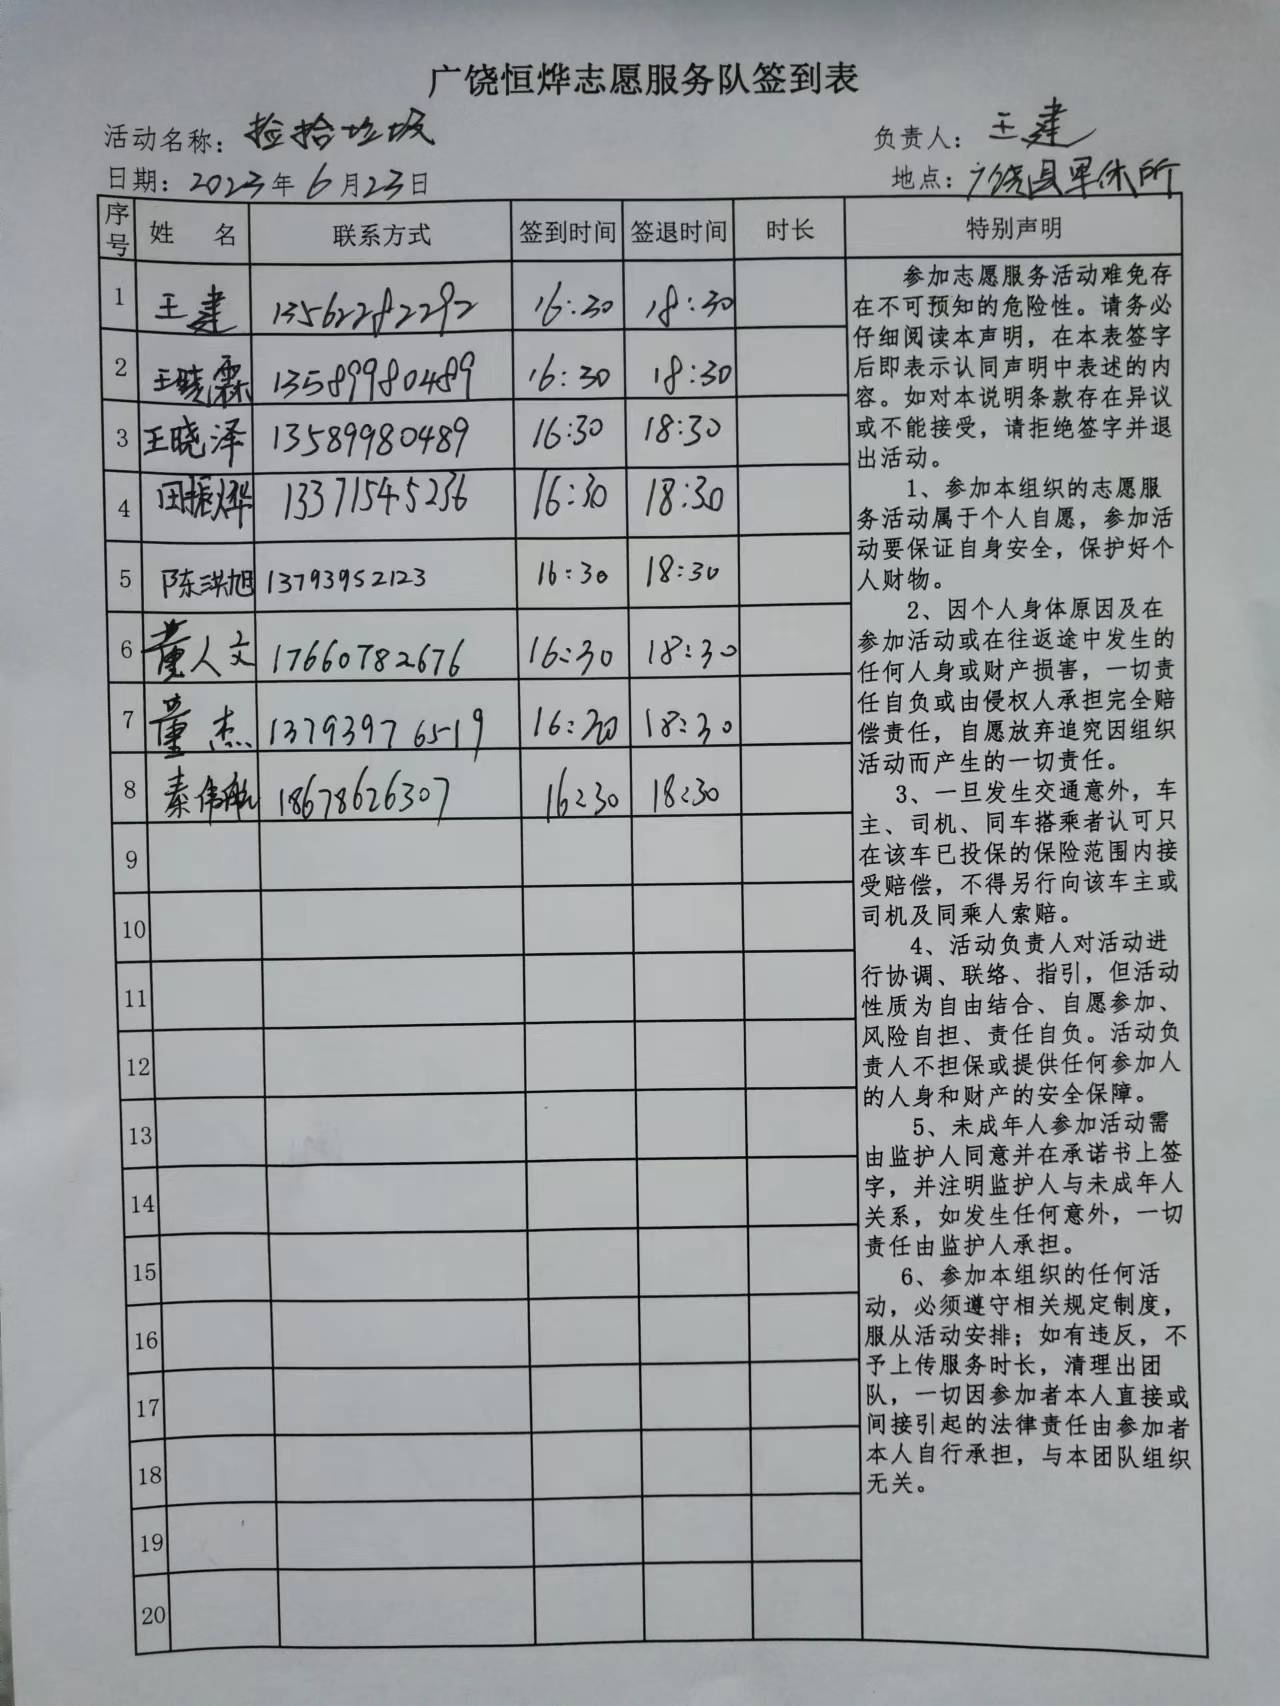 广饶恒烨志愿服务队签到表
活动名称：捡拾垃圾 负责人：王建
日期：2023年6月23日 地点：广饶县军休所
序号 姓 名 联系方式 签到时间 签退时间 时长 特别声明
1 王建 13562282292 16:30 18:30
2 王晓霖 13589980489 16:30 18:30
3 王晓泽 13589980489 16:30 18:30
4 田振烨 13371545236 16:30 18:30
5 陈洪旭 13793952123 16:30 18:30
6 董人文 17660782676 16:30 18:30
7 董杰 13793976519 16:30 18:30
8 秦伟航 18678626307 16:30 18:30
9
10
11
12
13
14
15
16
17
18
19
20
参加志愿服务活动难免存
在不可预知的危险性。请务必
仔细阅读本声明，在本表签字
后即表示认同声明中表述的内
容。如对本说明条款存在异议
或不能接受，请拒绝签字并退
出活动。
1、参加本组织的志愿服
务活动属于个人自愿，参加活
动要保证自身安全，保护好个
人财物。
2、因个人身体原因及在
参加活动或在往返途中发生的
任何人身或财产损害，一切责
任自负或由侵权人承担完全赔
偿责任，自愿放弃追究因组织
活动而产生的一切责任。
3、一旦发生交通意外，车
主、司机、同车搭乘者认可只
在该车已投保的保险范围内接
受赔偿，不得另行向该车主或
司机及同乘人索赔。
4、活动负责人对活动进
行协调、联络、指引，但活动
性质为自由结合、自愿参加、
风险自担、责任自负。活动负
责人不担保或提供任何参加人
的人身和财产的安全保障。
5、未成年人参加活动需
由监护人同意并在承诺书上签
字，并注明监护人与未成年人
关系，如发生任何意外，一切
责任由监护人承担。
6、参加本组织的任何活
动，必须遵守相关规定制度，
服从活动安排；如有违反，不
予上传服务时长，清理出团
队，一切因参加者本人直接或
间接引起的法律责任由参加者
本人自行承担，与本团队组织
无关。